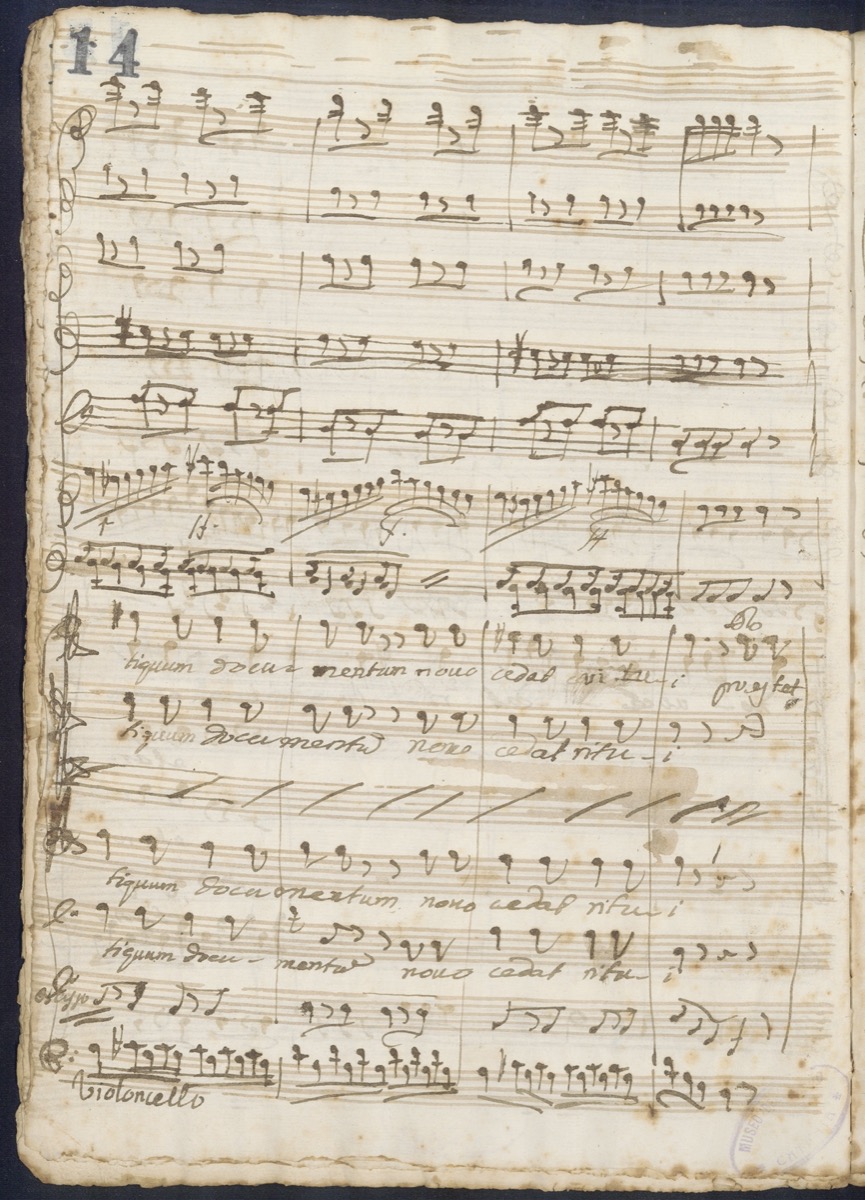 14
tiquum docu- mentum novo cedat ritu- i præstet
tiquum documentũ novo cedat ritu- i
tiquum documentum novo cedat ritu- i
tiquum docu- mentũ novo cedat ritu- i
Violoncello
MUSEO